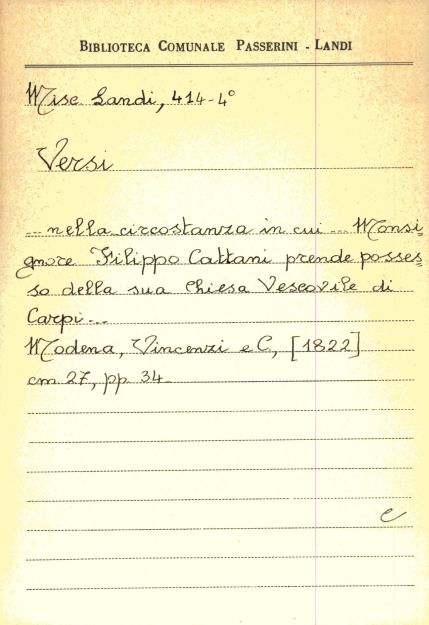 BIBLIOTECA COMUNALE PASSERINI - LANDI
Misc Landi, 414-4°
Versi
... nella circostanza in cui ... Monsi=
gnore Filippo Cattani prende posses=
so della sua Chiesa Vescovile di
Carpi...
Modena, Vincenzi e C., [1822]
cm 27, pp. 34
e